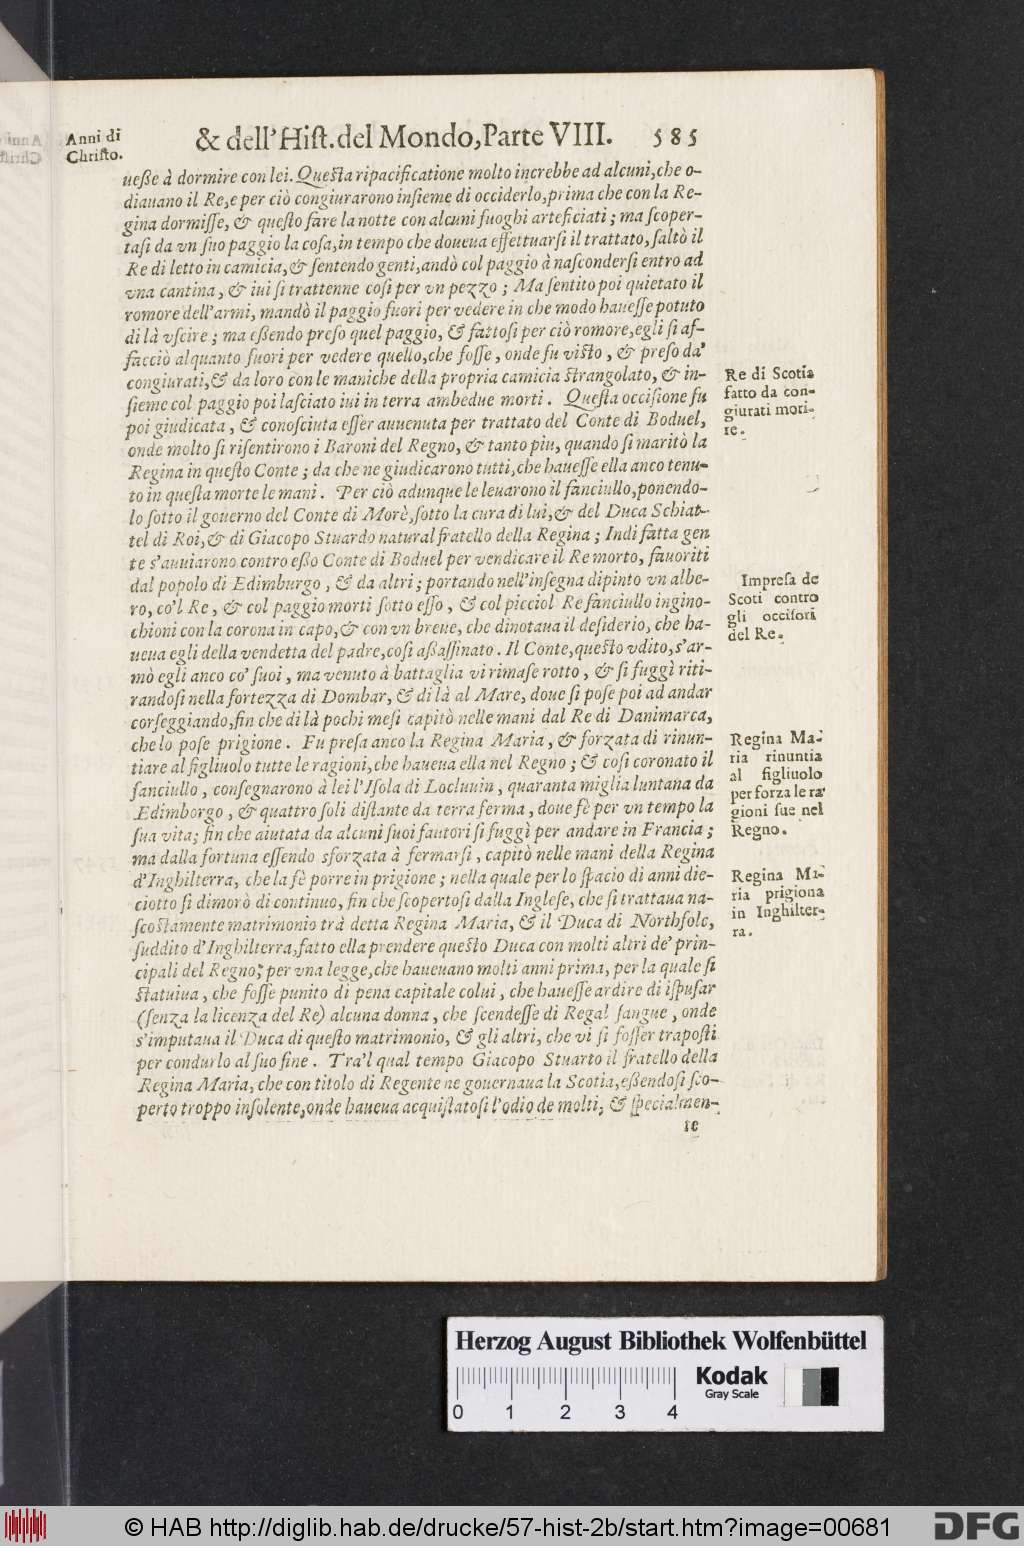 Anni di
Christo.
& dell'Hist. del Mondo, Parte VIII. 585
uesse à dormire con lei. Questa ripacificatione molto increbbe ad alcuni, che o-
diauano il Re, e per ciò congiurarono insieme di occiderlo, prima che con la Re-
gina dormisse, & questo fare la notte con alcuni fuoghi arteficiati; ma scoper-
tasi da vn suo paggio la cosa, in tempo che doueua effettuarsi il trattato, saltò il
Re di letto in camicia, & sentendo genti, andò col paggio à nascondersi entro ad
vna cantina, & iui si trattenne cosi per vn pezzo; Ma sentito poi quietato il
romore dell'armi, mandò il paggio fuori per vedere in che modo hauesse potuto
di là vscire; ma essendo preso quel paggio, & fattosi per ciò romore, egli si af-
facciò alquanto fuori per vedere quello, che fosse, onde fu visto, & preso da'
congiurati, & da loro con le maniche della propria camicia strangolato, & in-
sieme col paggio poi lasciato iui in terra ambedue morti. Questa occisione fu
poi giudicata, & conosciuta esser auuenuta per trattato del Conte di Boduel,
onde molto si risentirono i Baroni del Regno, & tanto piu, quando si maritò la
Regina in questo Conte; da che ne giudicarono tutti, che hauesse ella anco tenu-
to in questa morte le mani. Per ciò adunque le leuarono il fanciullo, ponendo-
lo sotto il gouerno del Conte di Morè, sotto la cura di lui, & del Duca Schiat-
tel di Roi, & di Giacopo Stuardo natural fratello della Regina; Indi fatta gen
te s'auuiarono contro esso Conte di Boduel per vendicare il Re morto, fauoriti
dal popolo di Edimburgo, & da altri; portando nell'insegna dipinto vn albe-
ro, co'l Re, & col paggio morti sotto esso, & col picciol Re fanciullo ingino-
chioni con la corona in capo, & con vn breue, che dinotaua il desiderio, che ha-
ueua egli della vendetta del padre, cosi assassinato. Il Conte, questo vdito, s'ar-
mò egli anco co' suoi, ma venuto à battaglia vi rimase rotto, & si fuggì riti-
randosi nella fortezza di Dombar, & di là al Mare, doue si pose poi ad andar
corseggiando, fin che di là pochi mesi capitò nelle mani dal Re di Danimarca,
che lo pose prigione. Fu presa anco la Regina Maria, & forzata di rinun-
tiare al figliuolo tutte le ragioni, che haueua ella nel Regno; & cosi coronato il
fanciullo, consegnarono à lei l'Isola di Locluuin, quaranta miglia luntana da
Edimborgo, & quattro soli distante da terra ferma, doue fè per vn tempo la
sua vita; fin che aiutata da alcuni suoi fautori si fuggì per andare in Francia;
ma dalla fortuna essendo sforzata à fermarsi, capitò nelle mani della Regina
d'Inghilterra, che la fè porre in prigione; nella quale per lo spacio di anni die-
ciotto si dimorò di continuo, fin che scopertosi dalla Inglese, che si trattaua na-
scostamente matrimonio trà detta Regina Maria, & il Duca di Northfolc,
suddito d'Inghilterra, fatto ella prendere questo Duca con molti altri de' prin-
cipali del Regno; per vna legge, che haueuano molti anni prima, per la quale si
statuiua, che fosse punito di pena capitale colui, che hauesse ardire di ispusar
(senza la licenza del Re) alcuna donna, che scendesse di Regal sangue, onde
s'imputaua il Duca di questo matrimonio, & gli altri, che vi si fosser traposti
per condurlo al suo fine. Tra'l qual tempo Giacopo Stuarto il fratello della
Regina Maria, che con titolo di Regente ne gouernaua la Scotia, essendosi sco-
perto troppo insolente, onde haueua acquistatosi l'odio de molti; & specialmen-
te
Re di Scotia
fatto da con-
giurati mori-
re.
Impresa de
Scoti contro
gli occisori
del Re.
Regina Ma-
ria rinuntia
al figliuolo
per forza le ra
gioni sue nel
Regno.
Regina Ma-
ria prigiona
in Inghilter-
ra.
Herzog August Bibliothek Wolfenbüttel
Kodak
Gray Scale
0 1 2 3 4
© HAB http://diglib.hab.de/drucke/57-hist-2b/start.htm?image=00681
DFG